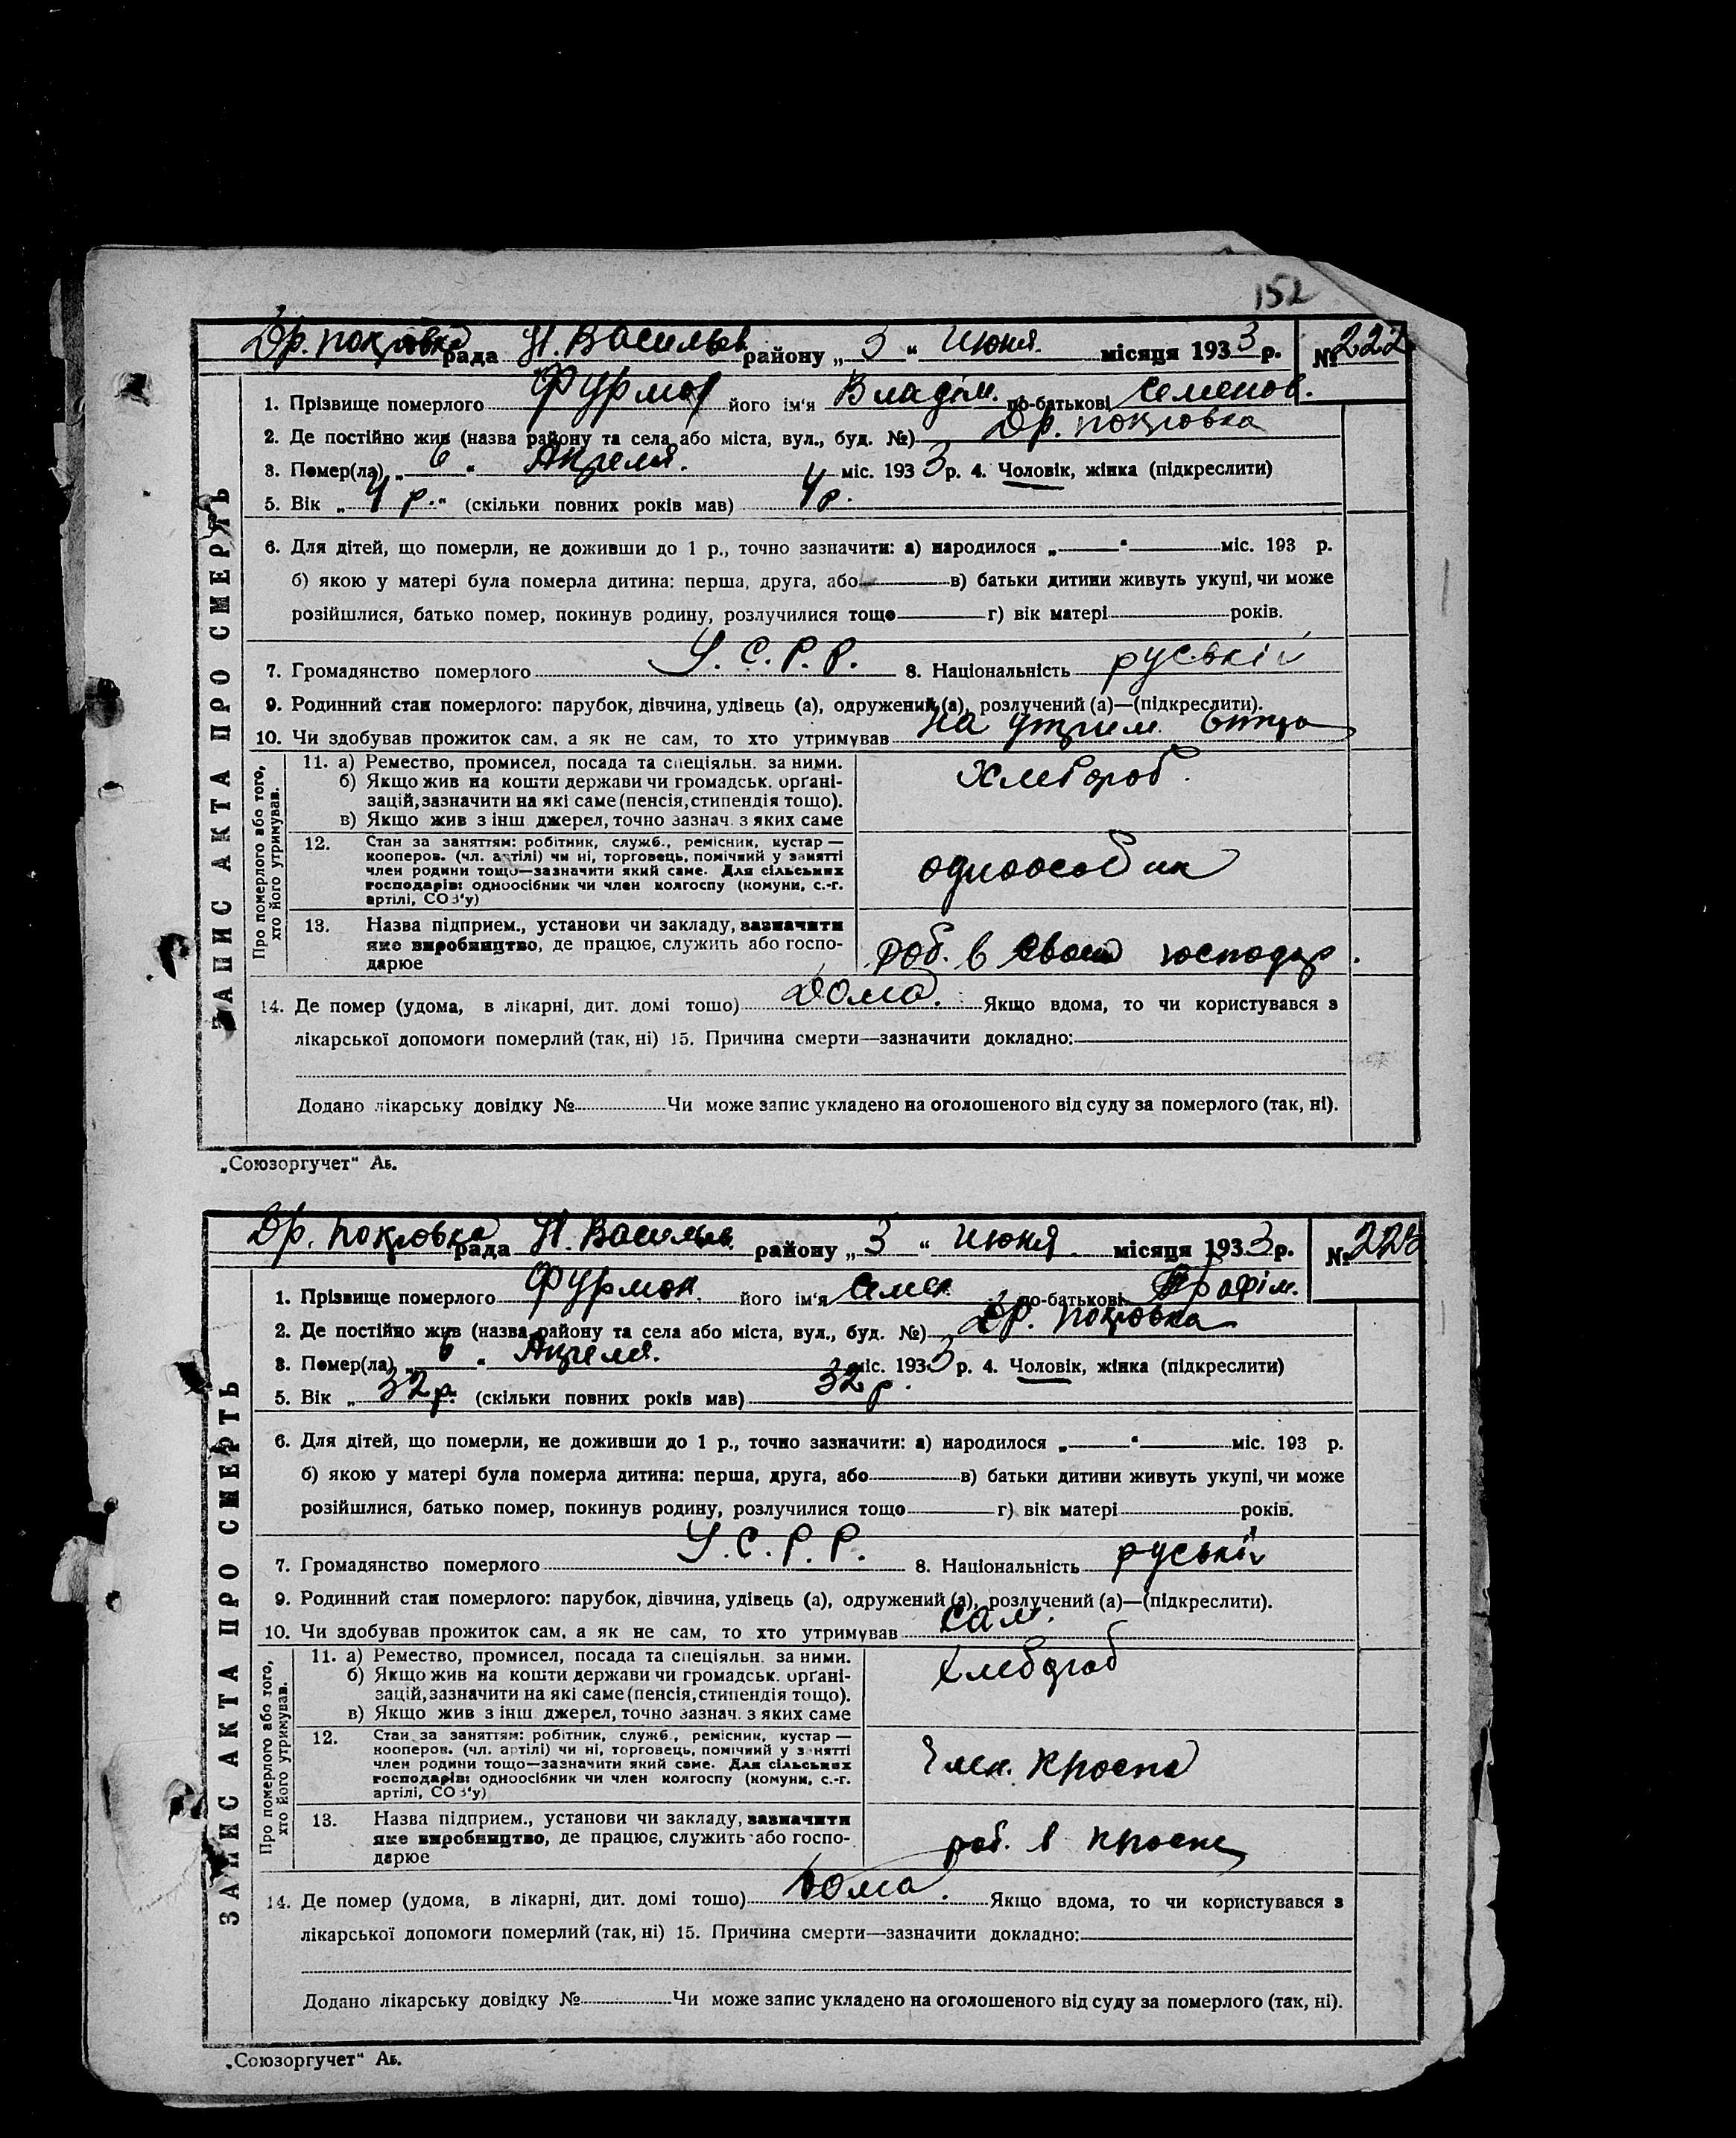 152
Др. Покровка рада Н. Васильев. району „ 3 “ Июня. місяця 1933 р. № 222
1. Прізвище померлого Фурман його ім'я Владім. по-батькові Семенов.
2. Де постійно жив (назва району та села або міста, вул., буд. №) Др. Покровка
3. Помер(ла) „ 6 “ Апреля. міс. 1933 р. 4. Чоловік, жінка (підкреслити)
5. Вік „ 4 р. “ (скільки повних років мав) 4 р.
6. Для дітей, що померли, не доживши до 1 р., точно зазначити: а) народилося „ “ міс. 193 р.
б) якою у матері була померла дитина: перша, друга, або в) батьки дитини живуть укупі, чи може
розійшлися, батько помер, покинув родину, розлучилися тощо г) вік матері років.
7. Громадянство померлого У. С. Р. Р. 8. Національність руській
9. Родинний стан померлого: парубок, дівчина, удівець (а), одружений (а), розлучений (а)—(підкреслити).
10. Чи здобував прожиток сам, а як не сам, то хто утримував на утрим. отца
ЗАПИС АКТА ПРО СМЕРТЬ
Про померлого або того, хто його утримував.
11. а) Ремество, промисел, посада та спеціяльн. за ними.
б) Якщо жив на кошти держави чи громадськ. орґані-
зацій, зазначити на які саме (пенсія, стипендія тощо).
в) Якщо жив з інш. джерел, точно зазнач. з яких саме
Хлебороб.
12. Стан за заняттям: робітник, служб., ремісник, кустар —
кооперов. (чл. артілі) чи ні, торговець, помічний у занятті
член родини тощо—зазначити який саме. Для сільських
господарів: одноосібник чи член колгоспу (комуни, с.-г.
артілі, СОЗ'у)
одноособник
13. Назва підприєм., установи чи закладу, зазначити
яке виробництво, де працює, служить або госпо-
дарює
роб. в своем господар.
14. Де помер (удома, в лікарні, дит. домі тощо) Дома. Якщо вдома, то чи користувався з
лікарської допомоги померлий (так, ні) 15. Причина смерти—зазначити докладно:
Додано лікарську довідку № Чи може запис укладено на оголошеного від суду за померлого (так, ні).
„Союзоргучет“ Аб.
Др. Покровка рада Н. Васильев. району „ 3 “ Июня. місяця 1933 р. № 223
1. Прізвище померлого Фурман. його ім'я Семен по-батькові Трофім.
2. Де постійно жив (назва району та села або міста, вул., буд. №) Др. Покровка
3. Помер(ла) „ 6 “ Апреля. міс. 1933 р. 4. Чоловік, жінка (підкреслити)
5. Вік „ 32 р. (скільки повних років мав) 32 р.
6. Для дітей, що померли, не доживши до 1 р., точно зазначити: а) народилося „ “ міс. 193 р.
б) якою у матері була померла дитина: перша, друга, або в) батьки дитини живуть укупі, чи може
розійшлися, батько помер, покинув родину, розлучилися тощо г) вік матері років.
7. Громадянство померлого У. С. Р. Р. 8. Національність руській
9. Родинний стан померлого: парубок, дівчина, удівець (а), одружений (а), розлучений (а)—(підкреслити).
10. Чи здобував прожиток сам, а як не сам, то хто утримував сам.
ЗАПИС АКТА ПРО СМЕРТЬ
Про померлого або того, хто його утримував.
11. а) Ремество, промисел, посада та спеціяльн. за ними.
б) Якщо жив на кошти держави чи громадськ. орґані-
зацій, зазначити на які саме (пенсія, стипендія тощо).
в) Якщо жив з інш. джерел, точно зазнач. з яких саме
Хлебороб
12. Стан за заняттям: робітник, служб., ремісник, кустар —
кооперов. (чл. артілі) чи ні, торговець, помічний у занятті
член родини тощо—зазначити який саме. Для сільських
господарів: одноосібник чи член колгоспу (комуни, с.-г.
артілі, СОЗ'у)
Член.
13. Назва підприєм., установи чи закладу, зазначити
яке виробництво, де працює, служить або госпо-
дарює
роб. в
14. Де помер (удома, в лікарні, дит. домі тощо) Дома. Якщо вдома, то чи користувався з
лікарської допомоги померлий (так, ні) 15. Причина смерти—зазначити докладно:
Додано лікарську довідку № Чи може запис укладено на оголошеного від суду за померлого (так, ні).
„Союзоргучет“ Аб.